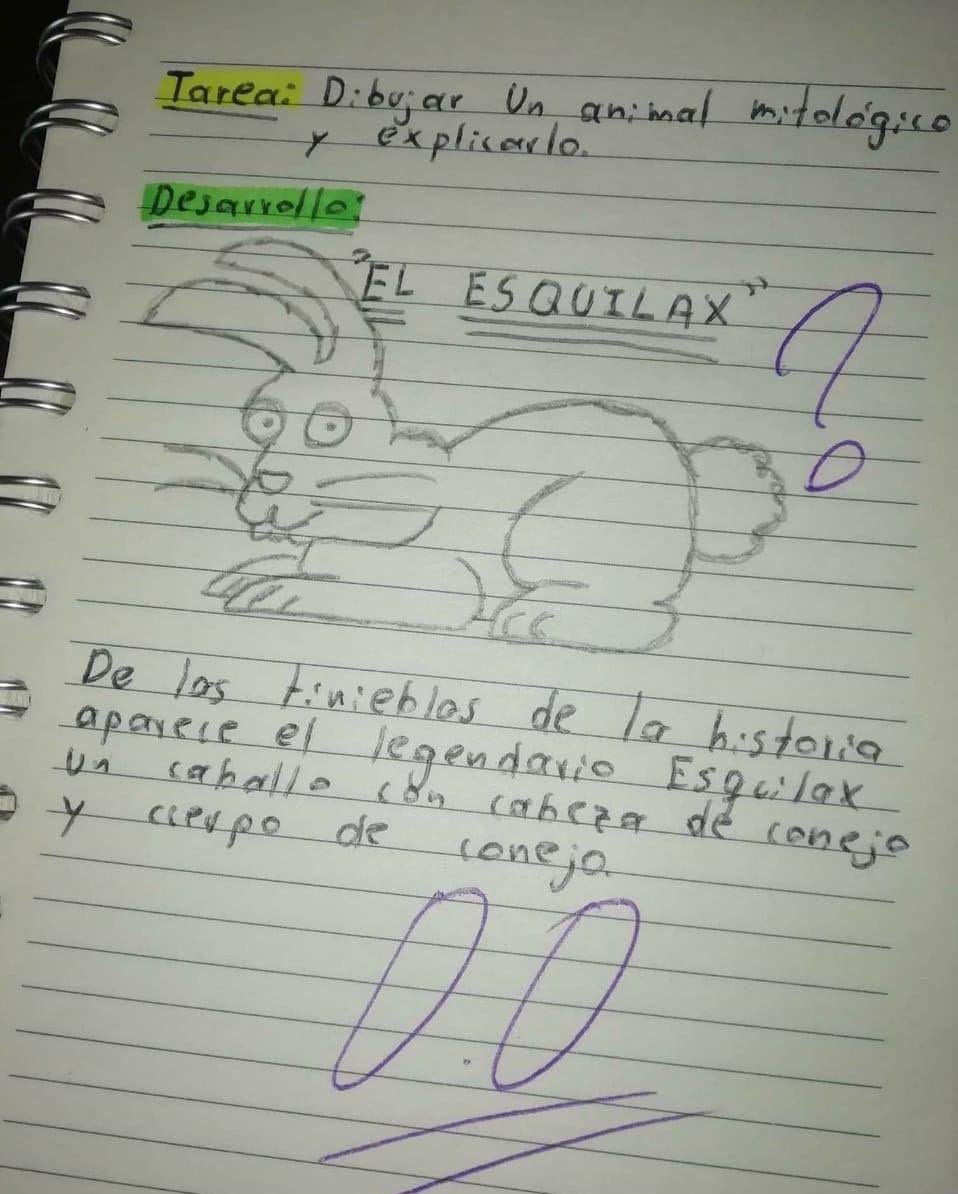 Tarea: Dibujar Un animal mitológico
y explicarlo.
Desarrollo:
"EL ESQUILAX"
?
De las tinieblas de la historia
aparece el legendario Esquilax
un caballo con cabeza de conejo
y cuerpo de conejo.
0.0